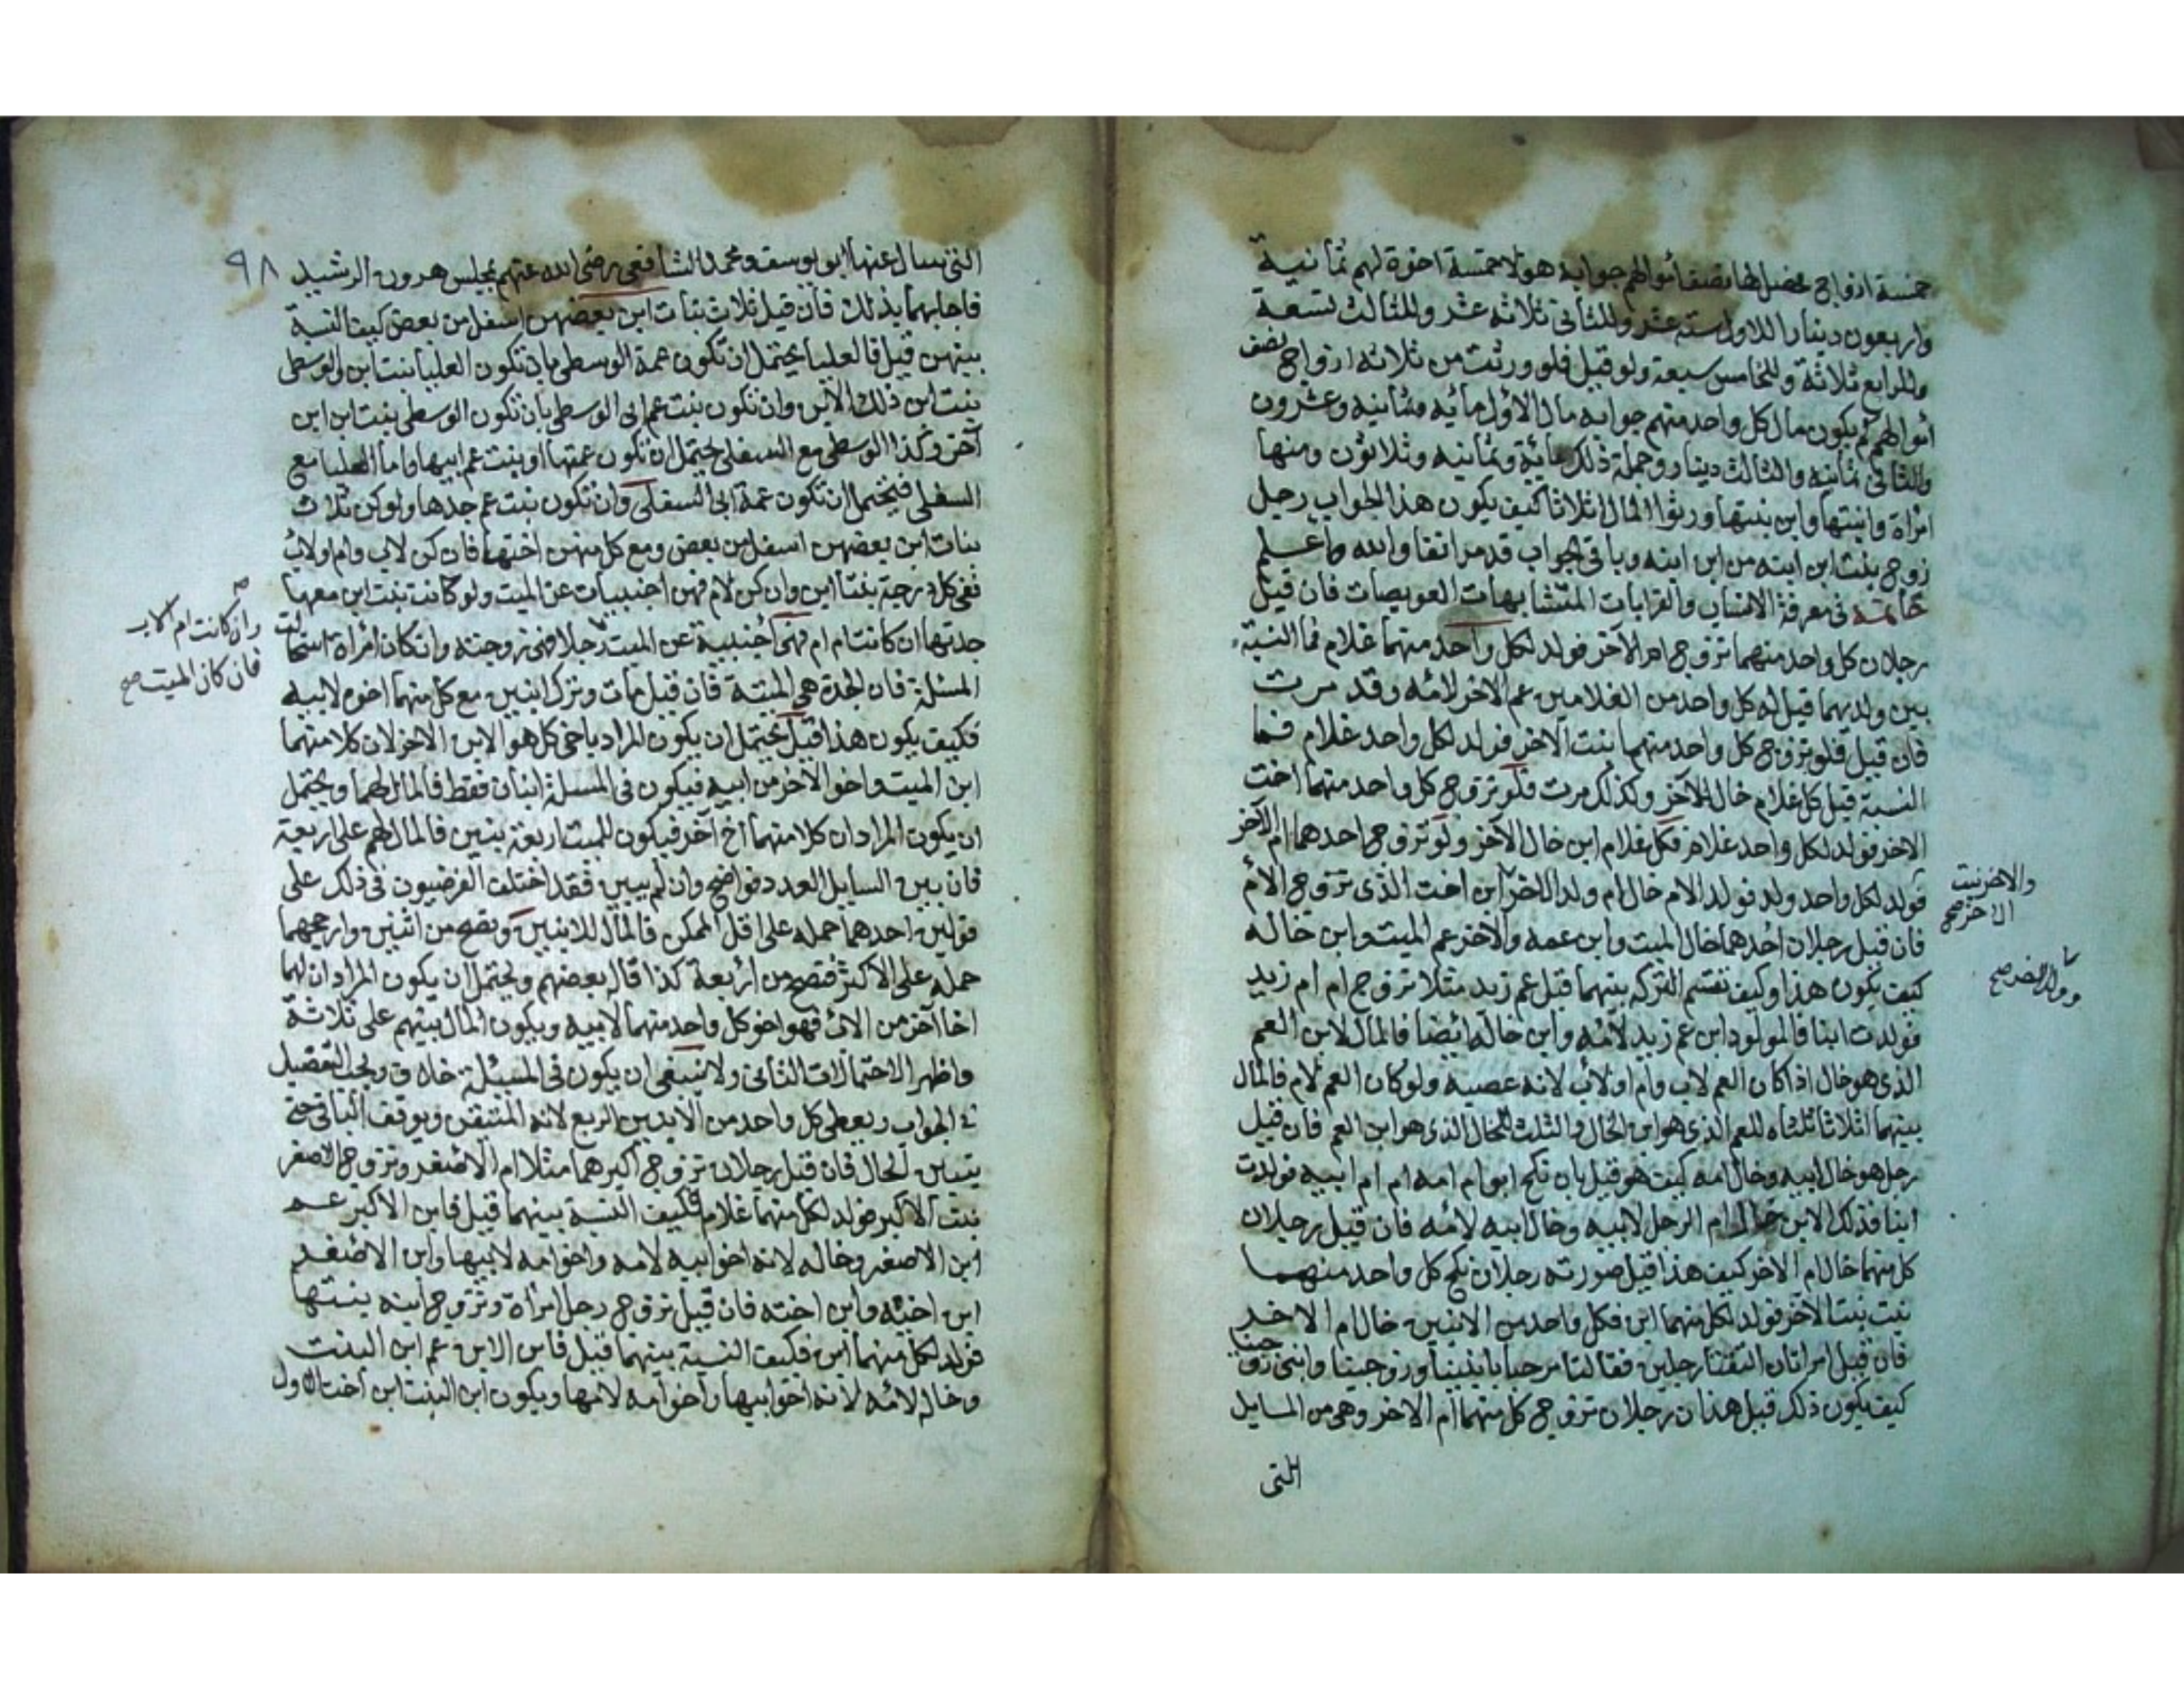 خمسة ازواج فحصل لها نصف أموالهم جوابه هولا خمسة اخوة لهم ثمانية
واربعون دينارا للاول ستة عشر وللثاني ثلاثة عشر وللثالث تسعة
وللرابع ثلاثة وللخامس سبعة ولو قيل فلو ورثت من ثلاثة ازواج نصف
أموالهم كم يكون مال كل واحد منهم جوابه مال الاول مائه وثمانيه وعشرون
والثاني ثمانيه والثالث دينار وجملة ذلك مائة وثمانيه وثلاثون ومنها
امراة وابنتها وابن بنتها ورثوا المال اثلاثا كيف يكون هذا الجواب رجل
زوج بنت ابن ابنه من ابن ابنه وباقي الجواب قد مر انفا والله اعلم
خاتمة في معرفة الانساب والقرابات المتشابهات العويصات فان قيل
رجلان كل واحد منهما تزوج ام الآخر فولد لكل واحد منهما غلام فما النسبة
بين ولديهما قيل له كل واحد من الغلامين عم الاخر لامه وقد مرت
فان قيل فلو تزوج كل واحد منهما بنت الآخر فولد لكل واحد غلام فما
النسبة قيل كل غلام خال الآخر وكذلك مرت فلو تزوج كل واحد منهما اخت
الاخر فولد لكل واحد غلام فكل غلام ابن خال الآخر ولو تزوج احدهما ام الآخر
والاخر بنت
الاخر صح
فولد لكل واحد ولد فولد الام خال ام ولد الاخر ابن اخت الذى تزوج الأم
وولد الاخر صح
فان قيل رجلان احدهما خال الميت وابن عمه والآخر عم الميت وابن خاله
كيف يكون هذا وكيف تقسم التركه بينهما قيل عم زيد مثلا تزوج ام ام زيد
فولدت ابنا فالمولود ابن عم زيد لأمه وابن خاله ايضا فالمال لابن العم
الذى هو خال اذا كان العم لاب وام او لأب لانه عصبه ولو كان العم لام فالمال
بينهما اثلاثا ثلثاه للعم الذى هو ابن الخال والثلث للخال الذى هو ابن العم فان قيل
رجل هو خال ابيه وخال امه كيف هو قيل بان نكح ابو ام امه ام ام ابيه فولدت
ابنا فذلك الابن خال ام الرجل لابيه وخال ابيه لامه فان قيل رجلان
كل منهما خال ام الاخر كيف هذا قيل صورته رجلان نكح كل واحد منهما
بنت بنت الآخر فولد لكل منهما ابن فكل واحد من الابنين خال ام الاخر
فان قيل امراتان التقتا رجلين فقالتا مرحبا بابنينا وزوجينا وابنى زوجينا
كيف يكون ذلك قيل هذان رجلان تزوج كل منهما أم الاخر وهي من المسايل
التى
٩٨
التى سال عنها ابو يوسف ومحمد الشافعي رضى الله عنهم بمجلس هرون الرشيد
فاجابهما بذلك فان قيل ثلاث بنات ابن بعضهن اسفل من بعض كيف النسبة
بينهن قيل فالعليا يحتمل ان تكون عمة الوسطى بان تكون العليا بنت ابن والوسطى
بنت ابن ذلك الابن وان تكون بنت عم ابى الوسطى بان تكون الوسطى بنت ابن ابن
آخر وكذا الوسطى مع السفلى يحتمل ان تكون عمتها او بنت عم ابيها واما العليا مع
السفلى فيحتمل ان تكون عمة ابى السفلى وان تكون بنت عم جدها ولو كن ثلاث
بنات ابن بعضهن اسفل من بعض ومع كل منهن اختها فان كن لاب وام او لاب
ففى كل درجة بنتا ابن وان كن لام فهن اجنبيات عن الميت ولو كانت بنت ابن معها
جدتها ان كانت ام ام فهى أجنبية عن الميت رجلا فهى زوجته وان كان امراة استحالت
وان كانت ام الاب
فان كان الميت صح
المسئلة فان الجدة هي الميتة فان قيل مات وترك ابنين مع كل منهما اخوه لابيه
فكيف يكون هذا قيل يحتمل ان يكون المراد باخى كل هو الابن الاخر لان كلا منهما
ابن الميت واخو الآخر من ابيه فيكون في المسئلة ابنان فقط فالمال لهما ويحتمل
ان يكون المراد ان كلا منهما أخ آخر فيكون للميت اربعة بنين فالمال لهم على اربعة
فان بين السايل العدد فواضح وان لم يبين فقد اختلف الفرضيون فى ذلك على
قولين احدهما حمله على اقل الممكن فالمال للابنين وتصح من اثنين وارجحهما
حمله على الاكثر فتصح من أربعة كذا قاله بعضهم ويحتمل ان يكون المراد ان لهما
اخا آخر من الاب فهو اخو كل واحد منهما لابيه ويكون المال بينهم على ثلاثة
واظهر الاحتمالات الثانى ولا ينبغى ان يكون فى المسئلة خلاف ويجب التفصيل
فى الجواب ويعطى كل واحد من الابنين الربع لانه المتيقن ويوقف الباقى حتى
يتبين الحال فان قيل رجلان تزوج اكبرهما مثلا ام الاصغر وتزوج الاصغر
بنت الاكبر فولد لكل منهما غلام فكيف النسبة بينهما قيل فابن الاكبر عم
ابن الاصغر وخاله لانه اخو ابيه لامه واخو امه لابيها وابن الاصغر
ابن اخيه وابن اخته فان قيل تزوج رجل امراة وتزوج ابنه بنتها
فولد لكل منهما ابن فكيف النسبة بينهما قيل فابن الابن عم ابن البنت
وخاله لأمه لانه اخو ابيها واخو امه لامها ويكون ابن البنت ابن أخت الاول